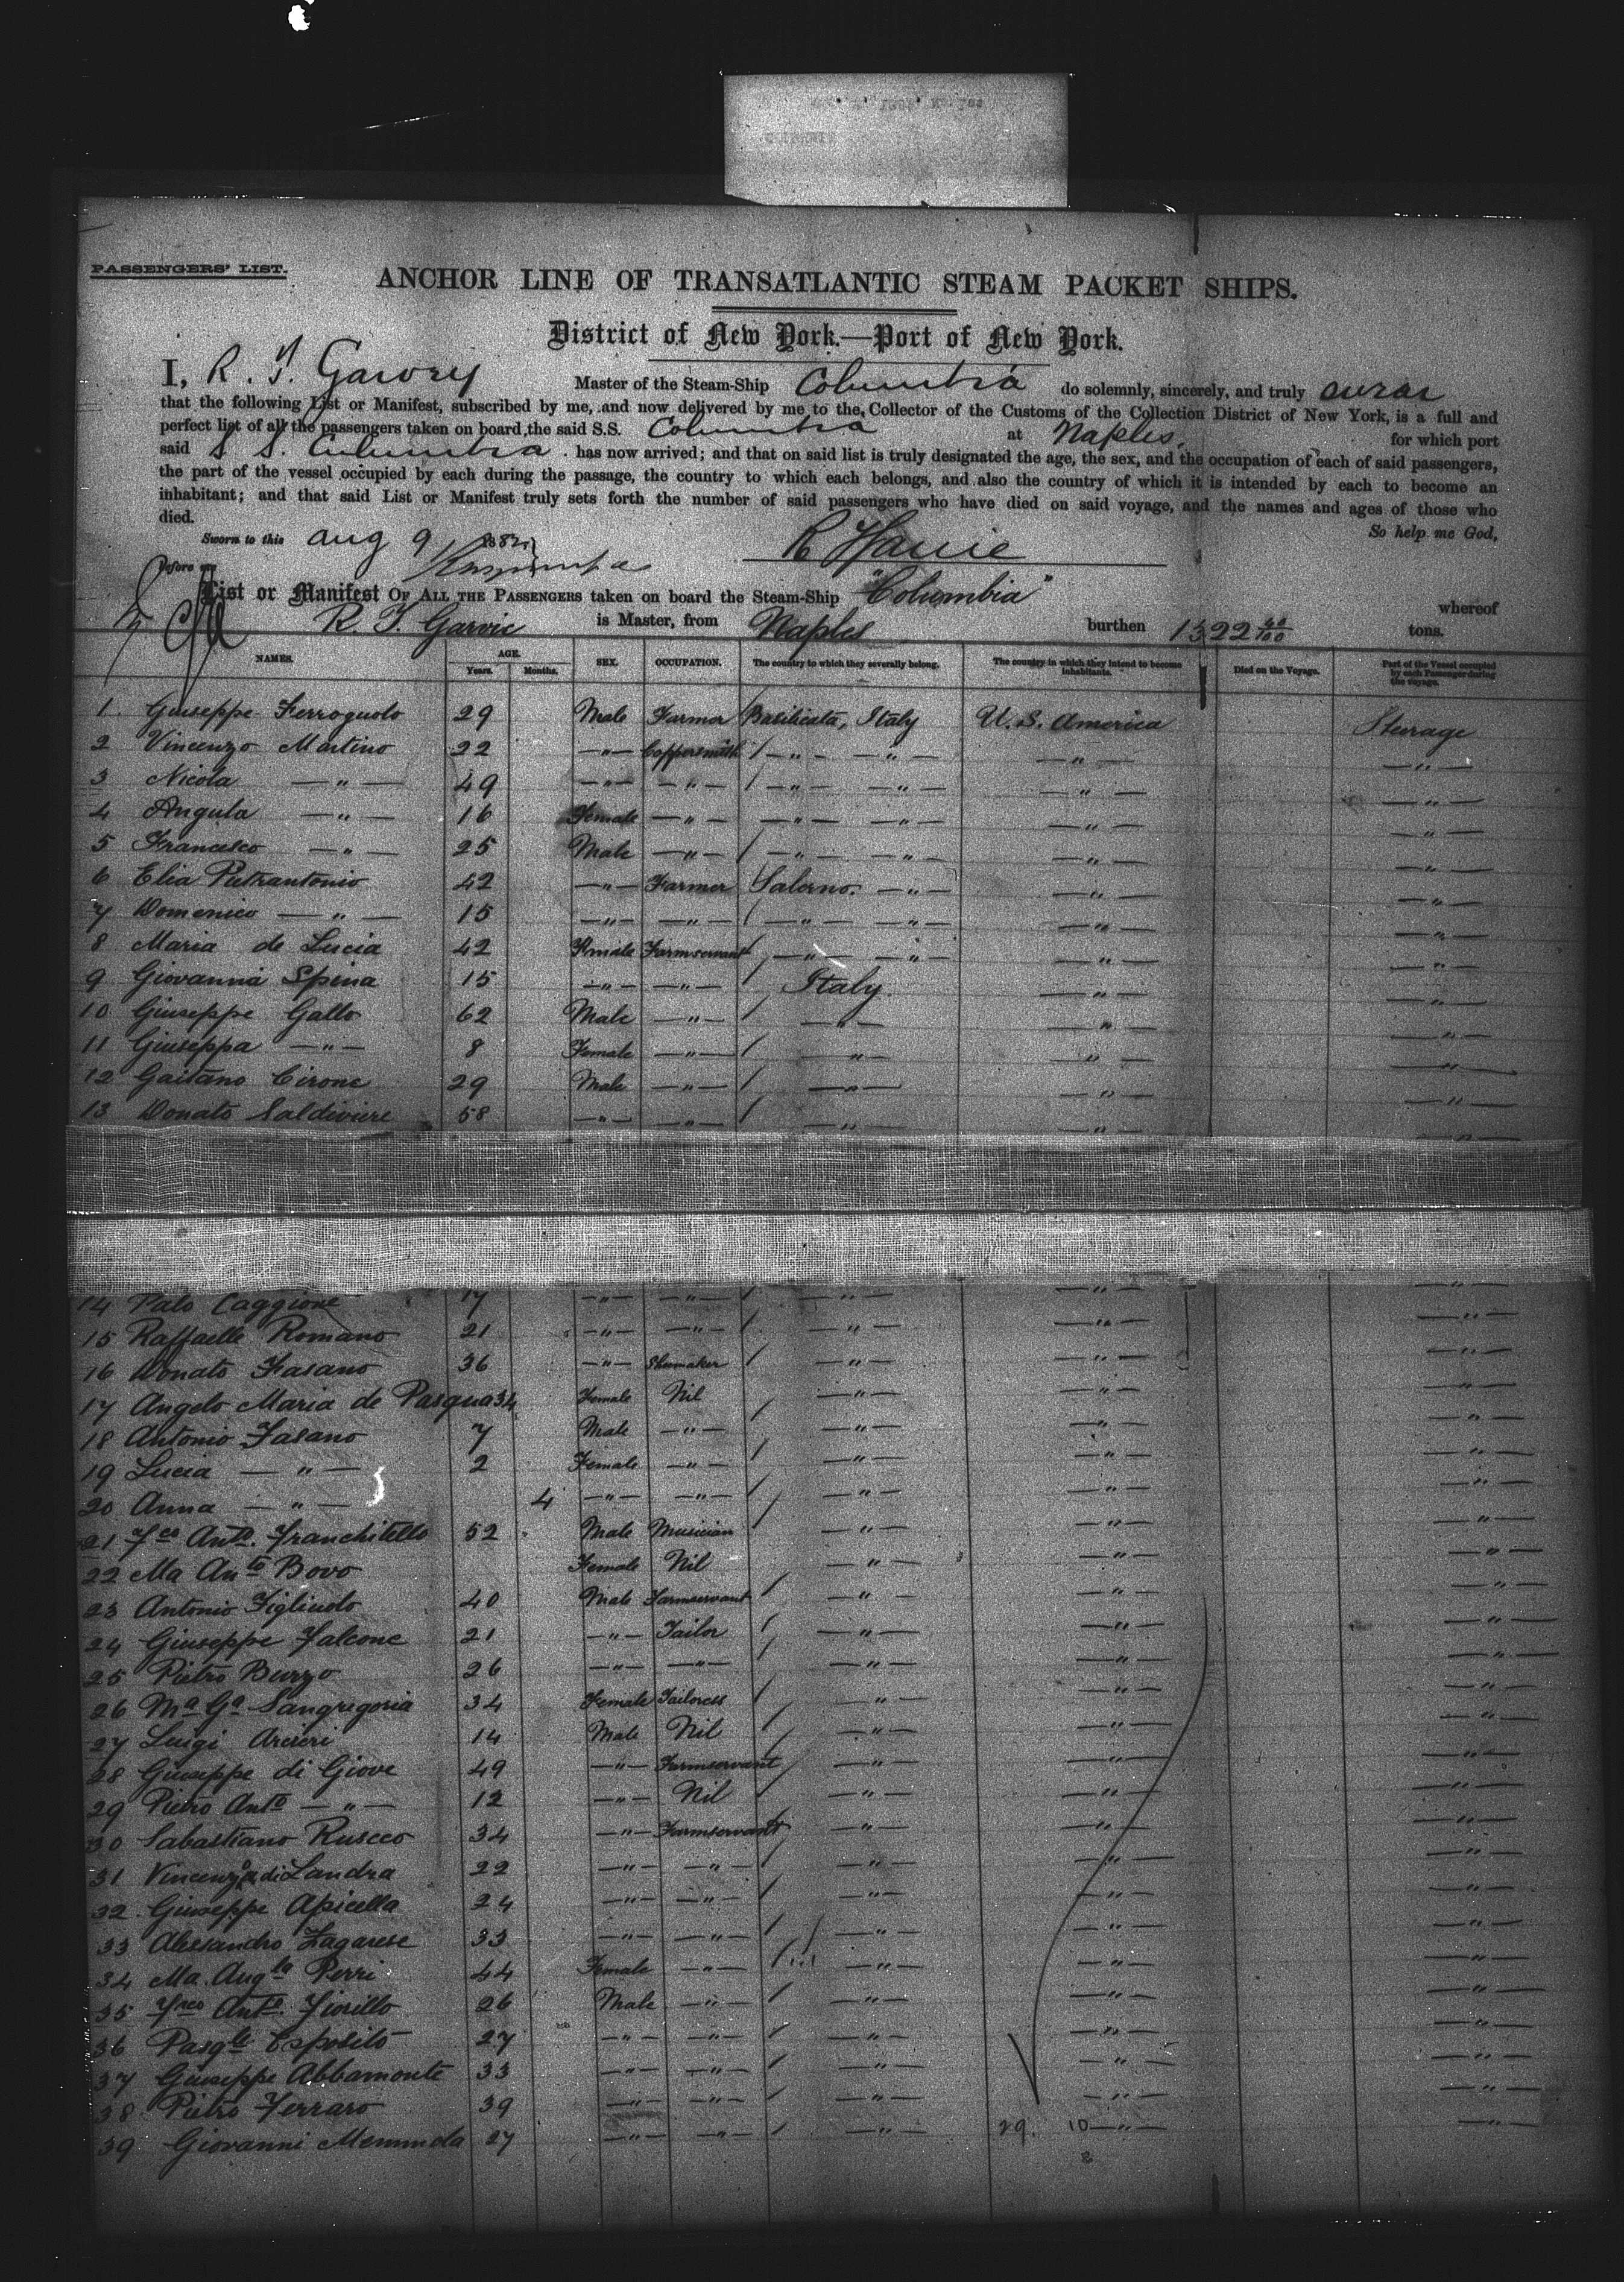 PASSENGERS' LIST.
ANCHOR LINE OF TRANSATLANTIC STEAM PACKET SHIPS.
District of New York.—Port of New York.
I, R. T. Master of the Steam-Ship Columbia do solemnly, sincerely, and truly swear
that the following List or Manifest, subscribed by me, and now delivered by me to the Collector of the Customs of the Collection District of New York, is a full and
perfect list of all the passengers taken on board the said S.S. Columbia at Naples, for which port
said S S. Columbia has now arrived; and that on said list is truly designated the age, the sex, and the occupation of each of said passengers,
the part of the vessel occupied by each during the passage, the country to which each belongs, and also the country of which it is intended by each to become an
inhabitant; and that said List or Manifest truly sets forth the number of said passengers who have died on said voyage, and the names and ages of those who
died. So help me God,
Sworn to this Aug 9
Before me
List or Manifest OF ALL THE PASSENGERS taken on board the Steam-Ship "Columbia" whereof
R. T. Garvie is Master, from Naples burthen 1322 tons.
NAMES. AGE. Years. Months. SEX. OCCUPATION. The country to which they severally belong. The country in which they intend to become inhabitants. Died on the Voyage. Part of the Vessel occupied by each Passenger during the voyage.
1 Giuseppe Ferrogudo 29 Male Farmer Basilicata, Italy U.S. America Sterrage
2 Vincenzo Martino 22 —"— Coppersmith / —"— —"— —"— —"—
3 Nicola —"— 49 —"— —"— / —"— —"— —"— —"—
4 Angula —"— 16 Female —"— —"— —"— —"— —"—
5 Francesco —"— 25 Male —"— / —"— —"— —"— —"—
6 Elia Pietrantonio 42 —"— Farmer Salerno. —"— —"— —"—
7 Domenico —"— 15 —"— —"— / —"— —"— —"— —"—
8 Maria de Lucia 42 Female Farmservant / —"— —"— —"— —"—
9 Giovanna Spina 15 —"— —"— / Italy. —"— —"—
10 Giuseppe Gallo 62 Male —"— / —"— —"— —"—
11 Giuseppa —"— 8 Female —"— / —"— —"— —"—
12 Gaitano Cirone 29 Male —"— / —"— —"— —"—
13 Donato Saldiviere 58 —"— —"— / —"— —"— —"—
14 Palo Caggione 17 —"— —"— / —"— —"— —"—
15 Raffaelle Romano 21 —"— —"— / —"— —"— —"—
16 Donato Fasano 36 —"— Shumaker / —"— —"— —"—
17 Angelo Maria de Pasqua 34 Female Nil / —"— —"— —"—
18 Antonio Fasano 7 Male —"— / —"— —"— —"—
19 Lucia —"— 2 Female —"— / —"— —"— —"—
20 Anna —"— 4 —"— —"— / —"— —"— —"—
21 Fco Anto. Franchitello 52 Male Musician / —"— —"— —"—
22 Ma Anta Bovo Female Nil —"— —"— —"—
23 Antonio Figliudo 40 Male Farmservant / —"— —"— —"—
24 Giuseppe Falcone 21 —"— Tailor / —"— —"— —"—
25 Pietro Burzo 26 —"— —"— / —"— —"— —"—
26 Ma Ga Sangregoria 34 Female Tailoress / —"— —"— —"—
27 Luigi Arcieri 14 Male Nil / —"— —"— —"—
28 Giuseppe di Giove 49 —"— Farmservant / —"— —"— —"—
29 Pietro Anto —"— 12 —"— Nil / —"— —"— —"—
30 Sabastiano Rusceo 34 —"— Farmservant / —"— —"— —"—
31 di Landra 22 —"— —"— / —"— —"— —"—
32 Giuseppe Apicella 24 —"— —"— / —"— —"— —"—
33 Alessandro Zagarese 33 —"— —"— / —"— —"— —"—
34 Ma. Angla Perri 44 Female —"— / —"— —"— —"—
35 Fnco Anto Fiorillo 26 Male —"— / —"— —"— —"—
36 Pasqle Esposito 27 —"— —"— / —"— —"— —"—
37 Giuseppe Abbamonte 33 —"— —"— / —"— —"— —"—
38 Pietro Ferraro 39 —"— —"— / —"— —"— —"—
39 Giovanni 27 —"— —"— / —"— 29. 10 —"— —"—
8